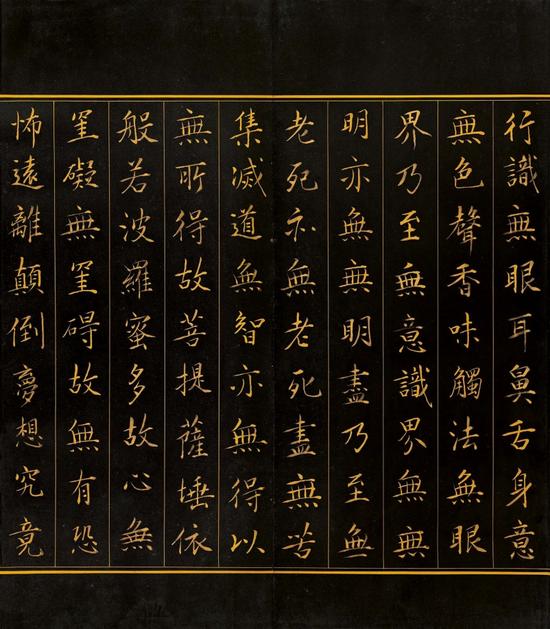 行識無眼耳鼻舌身意
無色聲香味觸法無眼
界乃至無意識界無無
明亦無無明盡乃至無
老死亦無老死盡無苦
集滅道無智亦無得以
無所得故菩提薩埵依
般若波羅蜜多故心無
罣礙無罣碍故無有恐
怖遠離顛倒夢想究竟